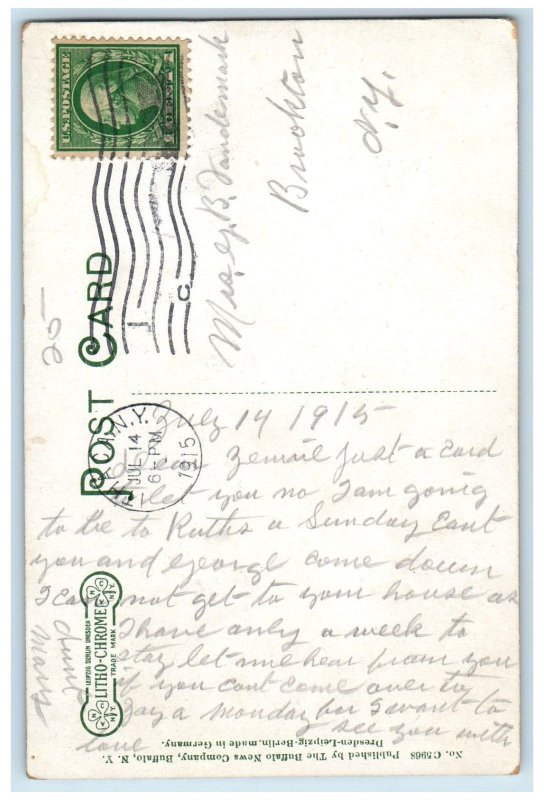 U.S. POSTAGE
1 CENT 1
POST CARD
ITHACA, N.Y.
JUL 14
6 PM
1915
Mrs. G. B. Vandemark
Brockton
N.Y.
20-
July 14 1915
Dear  Just a card
to let you no I am going
to be to Ruths a Sunday Cant
you and George come down
I can not get to your house as
I have only a week to
stay let me hear from you
if you cant come over to
 a monday for I want to
see you with
love
Aunt
Mary
LEIPZIG BERLIN DRESDEN
LITHO-CHROME
TRADE MARK
N.C.
N.Y.
No. C5968 Published by The Buffalo News Company, Buffalo, N. Y.
Dresden-Leipzig-Berlin. made in Germany.